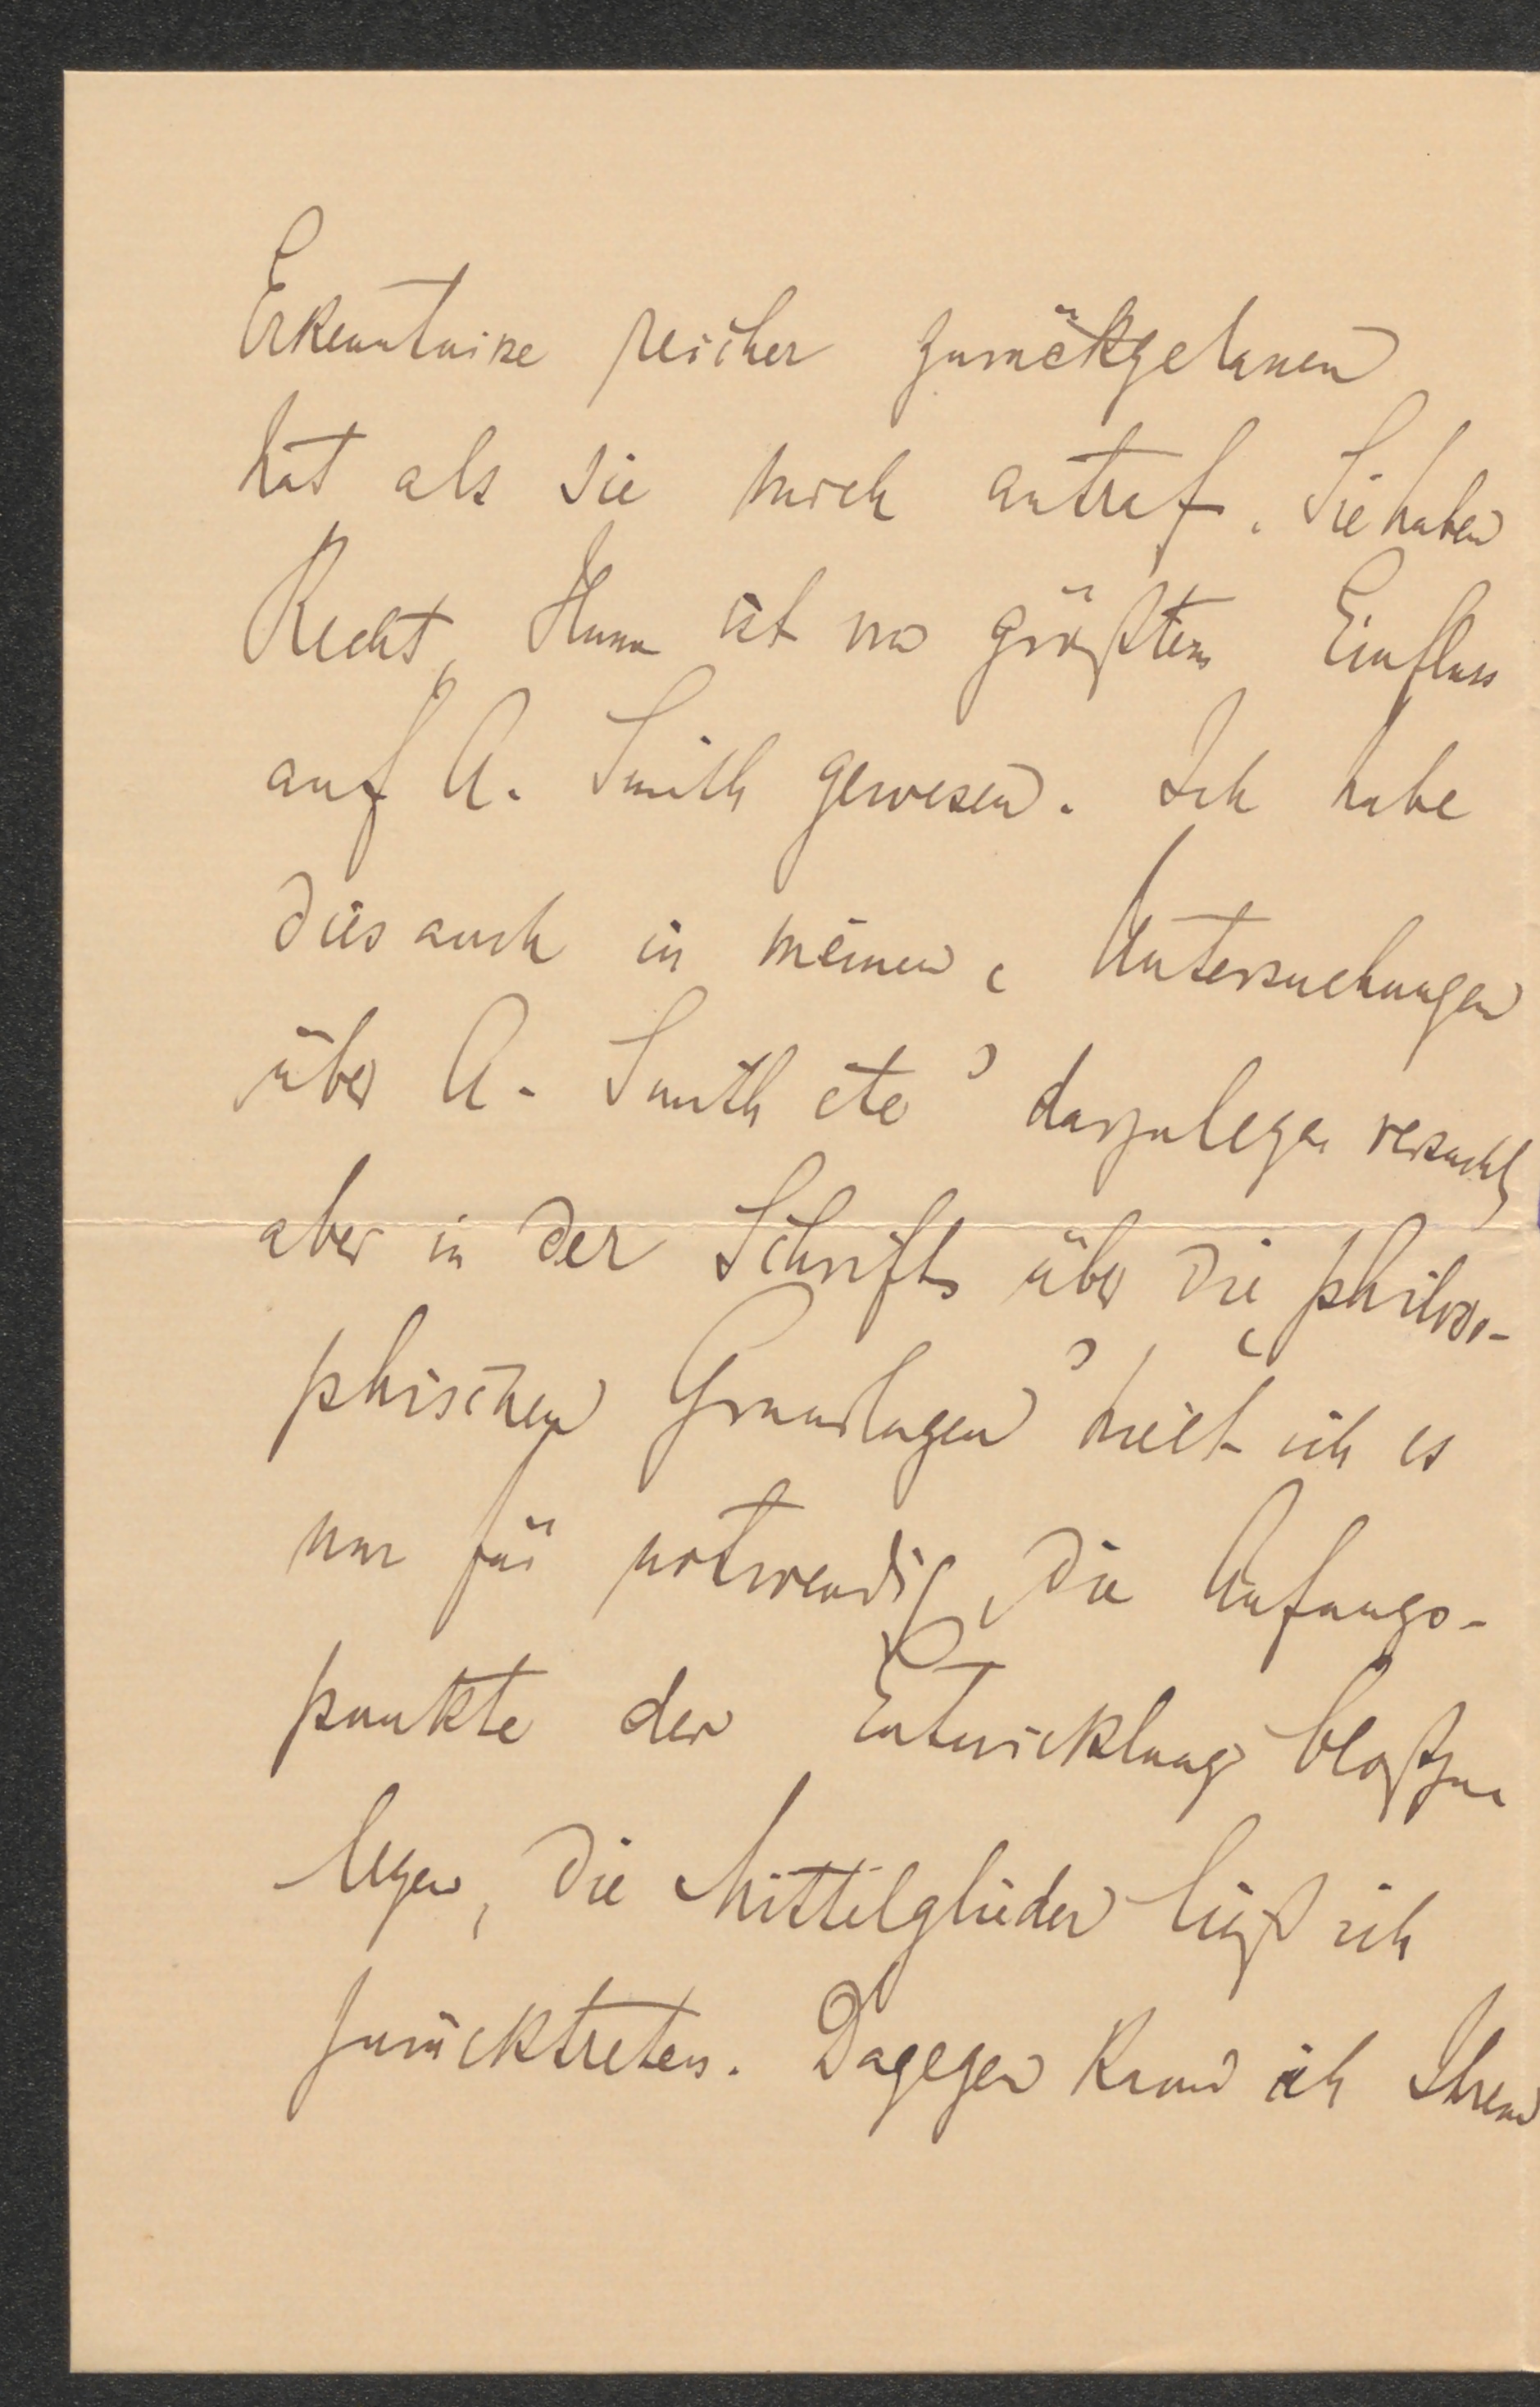 Erkenntnisse reicher zurückgelassen
hat als sie mich antraf. Sie haben
Recht, Hume ist von größtem Einfluss
auf A. Smith gewesen. Ich habe
dies auch in meinen „Untersuchungen
über A. Smith etc“ darzulegen versucht,
aber in der Schrift über die „philoso-
phischen Grundlagen“ hielt ich es
nur für notwendig, die Anfangs-
punkte der Entwicklung bloßzu
legen, die Mittelglieder ließ ich
zurücktreten. Dagegen kann ich Ihren